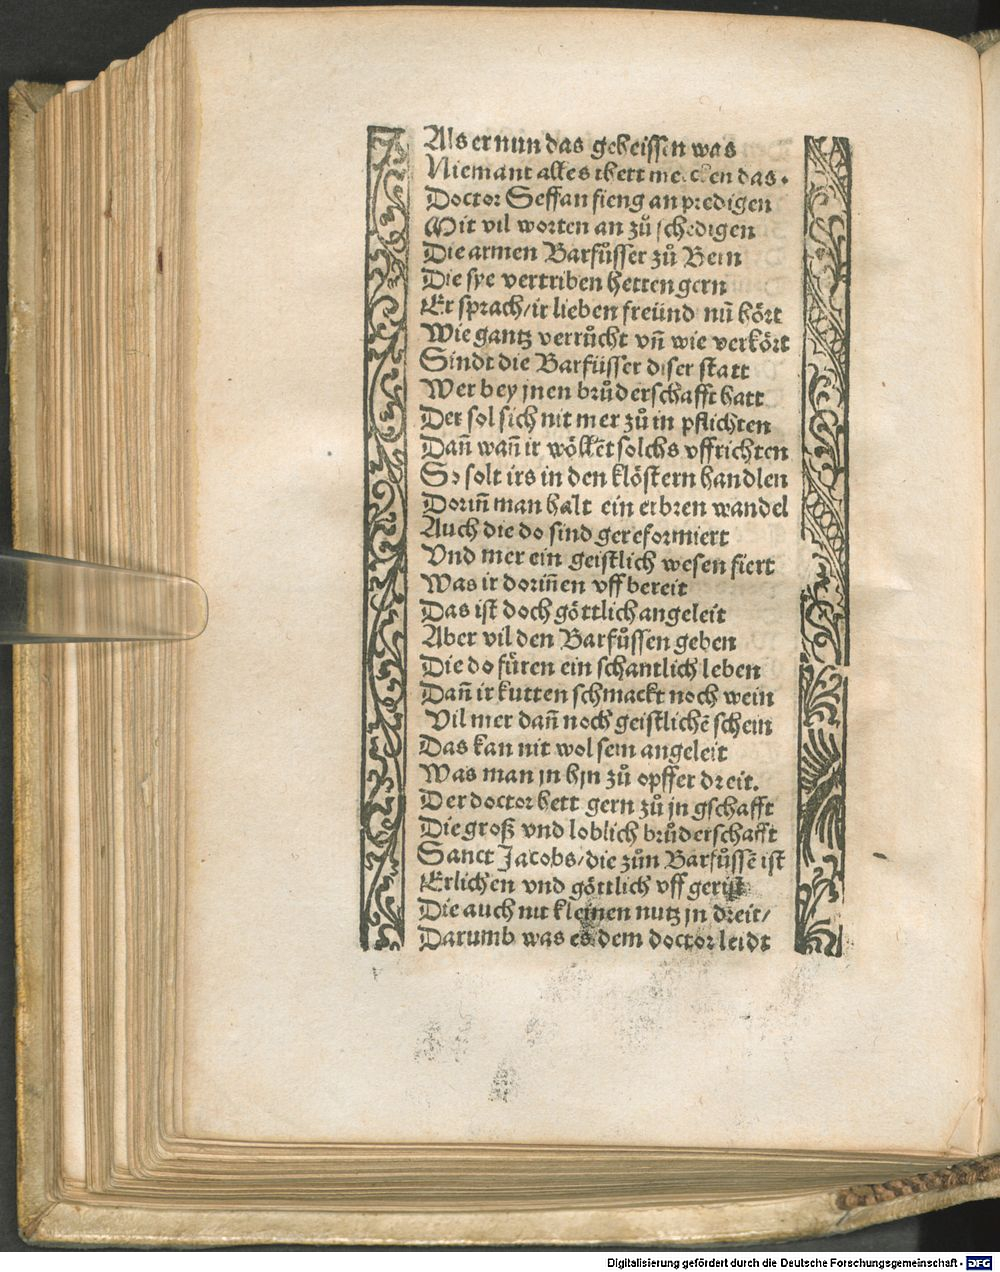 Als er nun das geheissen was
Niemant alles thett mercken das.
Doctor Steffan fieng an predigen
Mit vil worten an zů schedigen
Die armen Barfůsser zů Bern
Die sye vertriben hetten gern
Er sprach/ir lieben freünd nũ hört
Wie gantz verrůcht vñ wie verkört
Sindt die Barfüsser diser statt
Wer bey jnen brůderschafft hatt
Der sol sich nit mer zů in pflichten
Dañ wañ ir wöllet solchs vffrichten
So solt irs in den klöstern handlen
Doriñ man halt ein erbren wandel
Auch die do sind gereformiert
Vnd mer ein geistlich wesen fiert
Was ir doriñen vff bereit
Das ist doch göttlich angeleit
Aber vil den Barfůssen geben
Die do füren ein schantlich leben
Dañ ir kutten schmackt noch wein
Vil mer dañ noch geistlichẽ schein
Das kan nit wol sein angeleit
Was man jn hjn zů opffer dreit.
Der doctor hett gern zů jn gschafft
Die groß vnd loblich brůderschafft
Sanct Jacobs/die zům Barfůssẽ ist
Erlichen vnd göttlich vff gerüst
Die auch nit kleinen nutz jn dreit/
Darumb was es dem doctor leidt
Digitalisierung gefördert durch die Deutsche Forschungsgemeinschaft - DFG